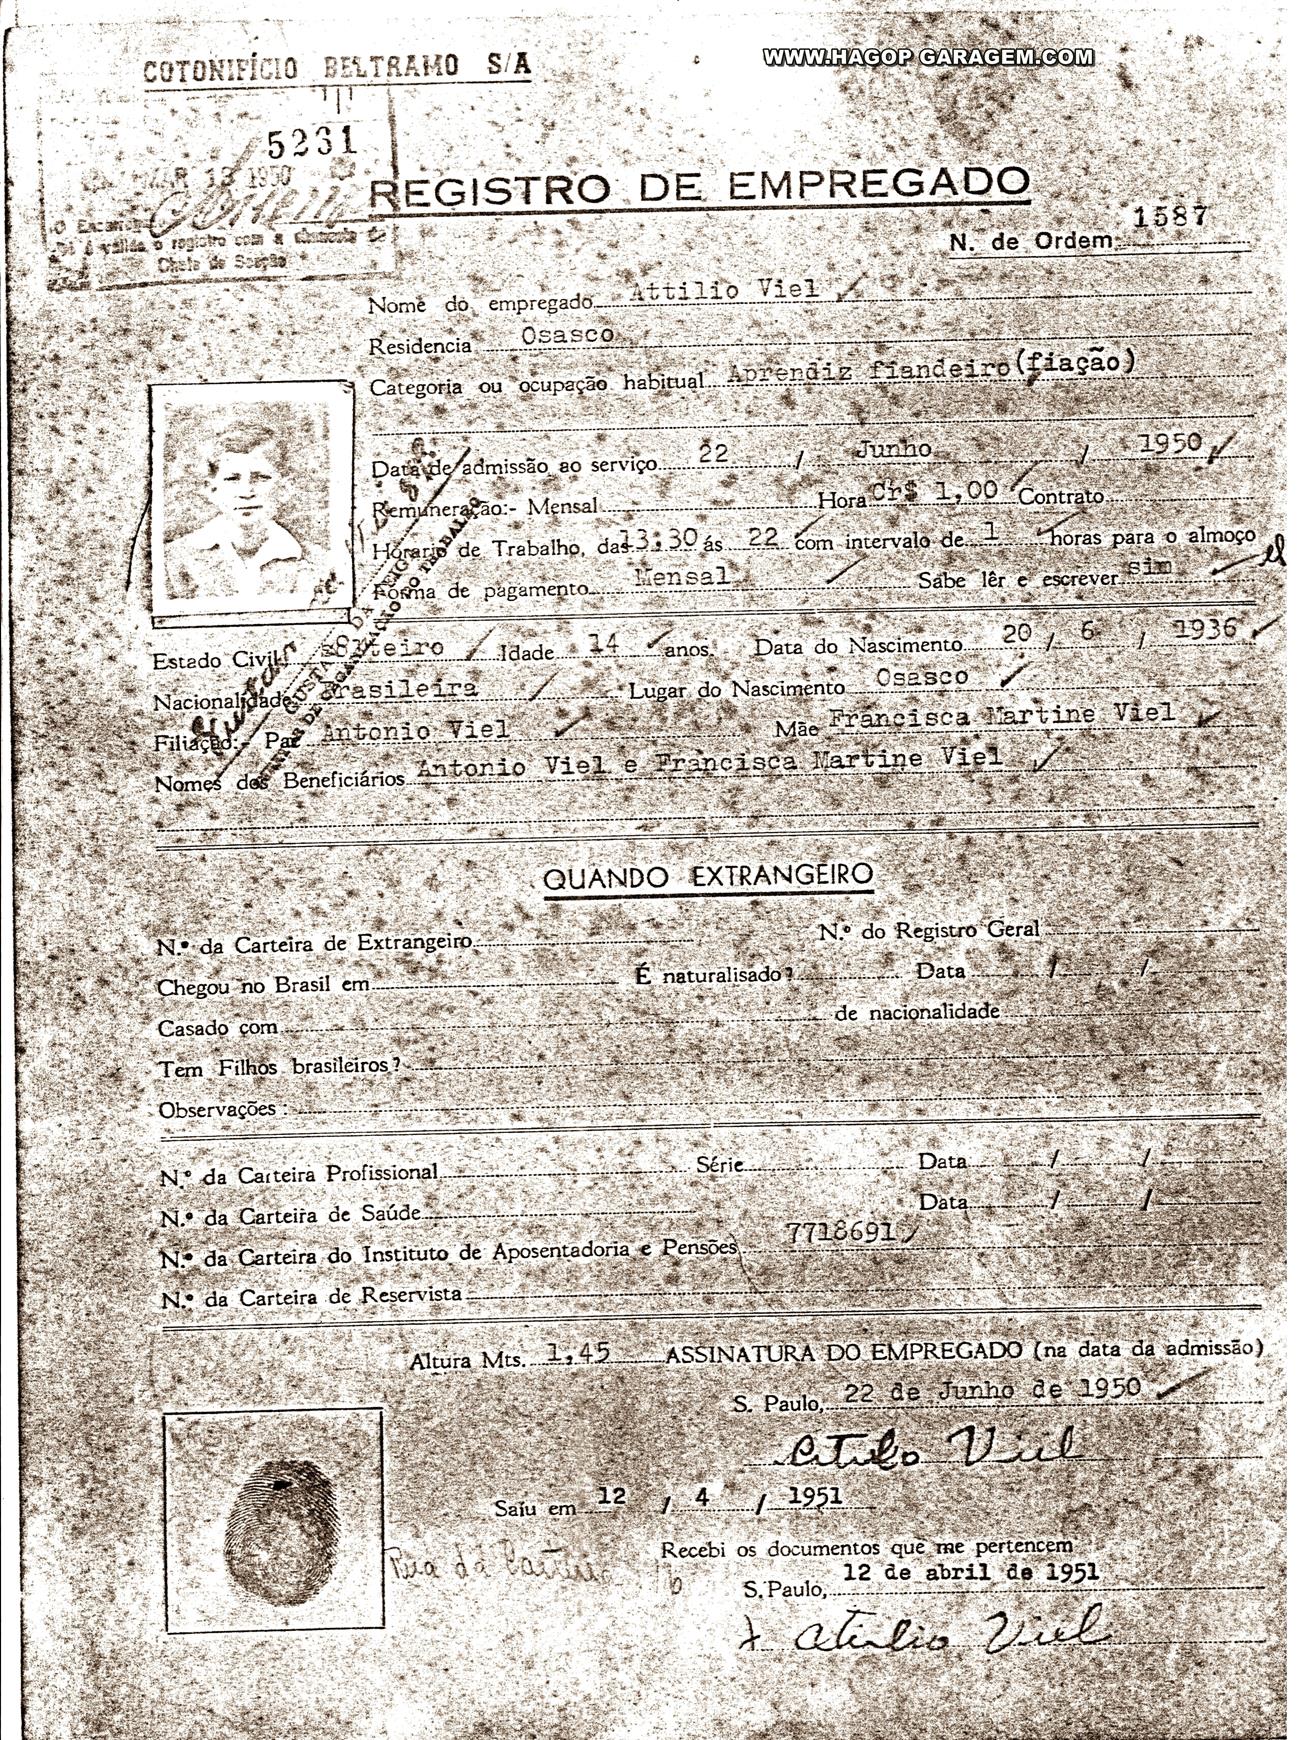 WWW.HAGOP GARAGEM.COM
COTONIFÍCIO BELTRAMO S/A
5231
MAR 13 1950
REGISTRO DE EMPREGADO
é válido o registro com a
Chefe de Secção
N. de Ordem 1587
Nome do empregado Attilio Viel
Residencia Osasco
Categoria ou ocupação habitual Aprendiz fiandeiro (fiação)
Data de admissão ao serviço 22 / Junho / 1950
Remuneração:- Mensal Hora Cr$ 1,00 Contrato
Horario de Trabalho, das 13:30 ás 22 com intervalo de 1 horas para o almoço
Forma de pagamento Mensal Sabe lêr e escrever sim
Estado Civil Solteiro Idade 14 anos. Data do Nascimento 20 / 6 / 1936
Nacionalidade Brasileira Lugar do Nascimento Osasco
Filiação:- Pai Antonio Viel Mãe Francisca Martine Viel
Nomes dos Beneficiários Antonio Viel e Francisca Martine Viel
QUANDO EXTRANGEIRO
N.º da Carteira de Extrangeiro N.º do Registro Geral
Chegou no Brasil em É naturalisado? Data / /
Casado com de nacionalidade
Tem Filhos brasileiros?
Observações:
N.º da Carteira Profissional Série Data / /
N.º da Carteira de Saúde Data / /
N.º da Carteira do Instituto de Aposentadoria e Pensões 7718691
N.º da Carteira de Reservista
Altura Mts. 1,45 ASSINATURA DO EMPREGADO (na data da admissão)
S. Paulo, 22 de Junho de 1950
Atilio Viel
Saíu em 12 / 4 / 1951
Recebi os documentos que me pertencem
Rua da 16
S. Paulo, 12 de abril de 1951
Atilio Viel